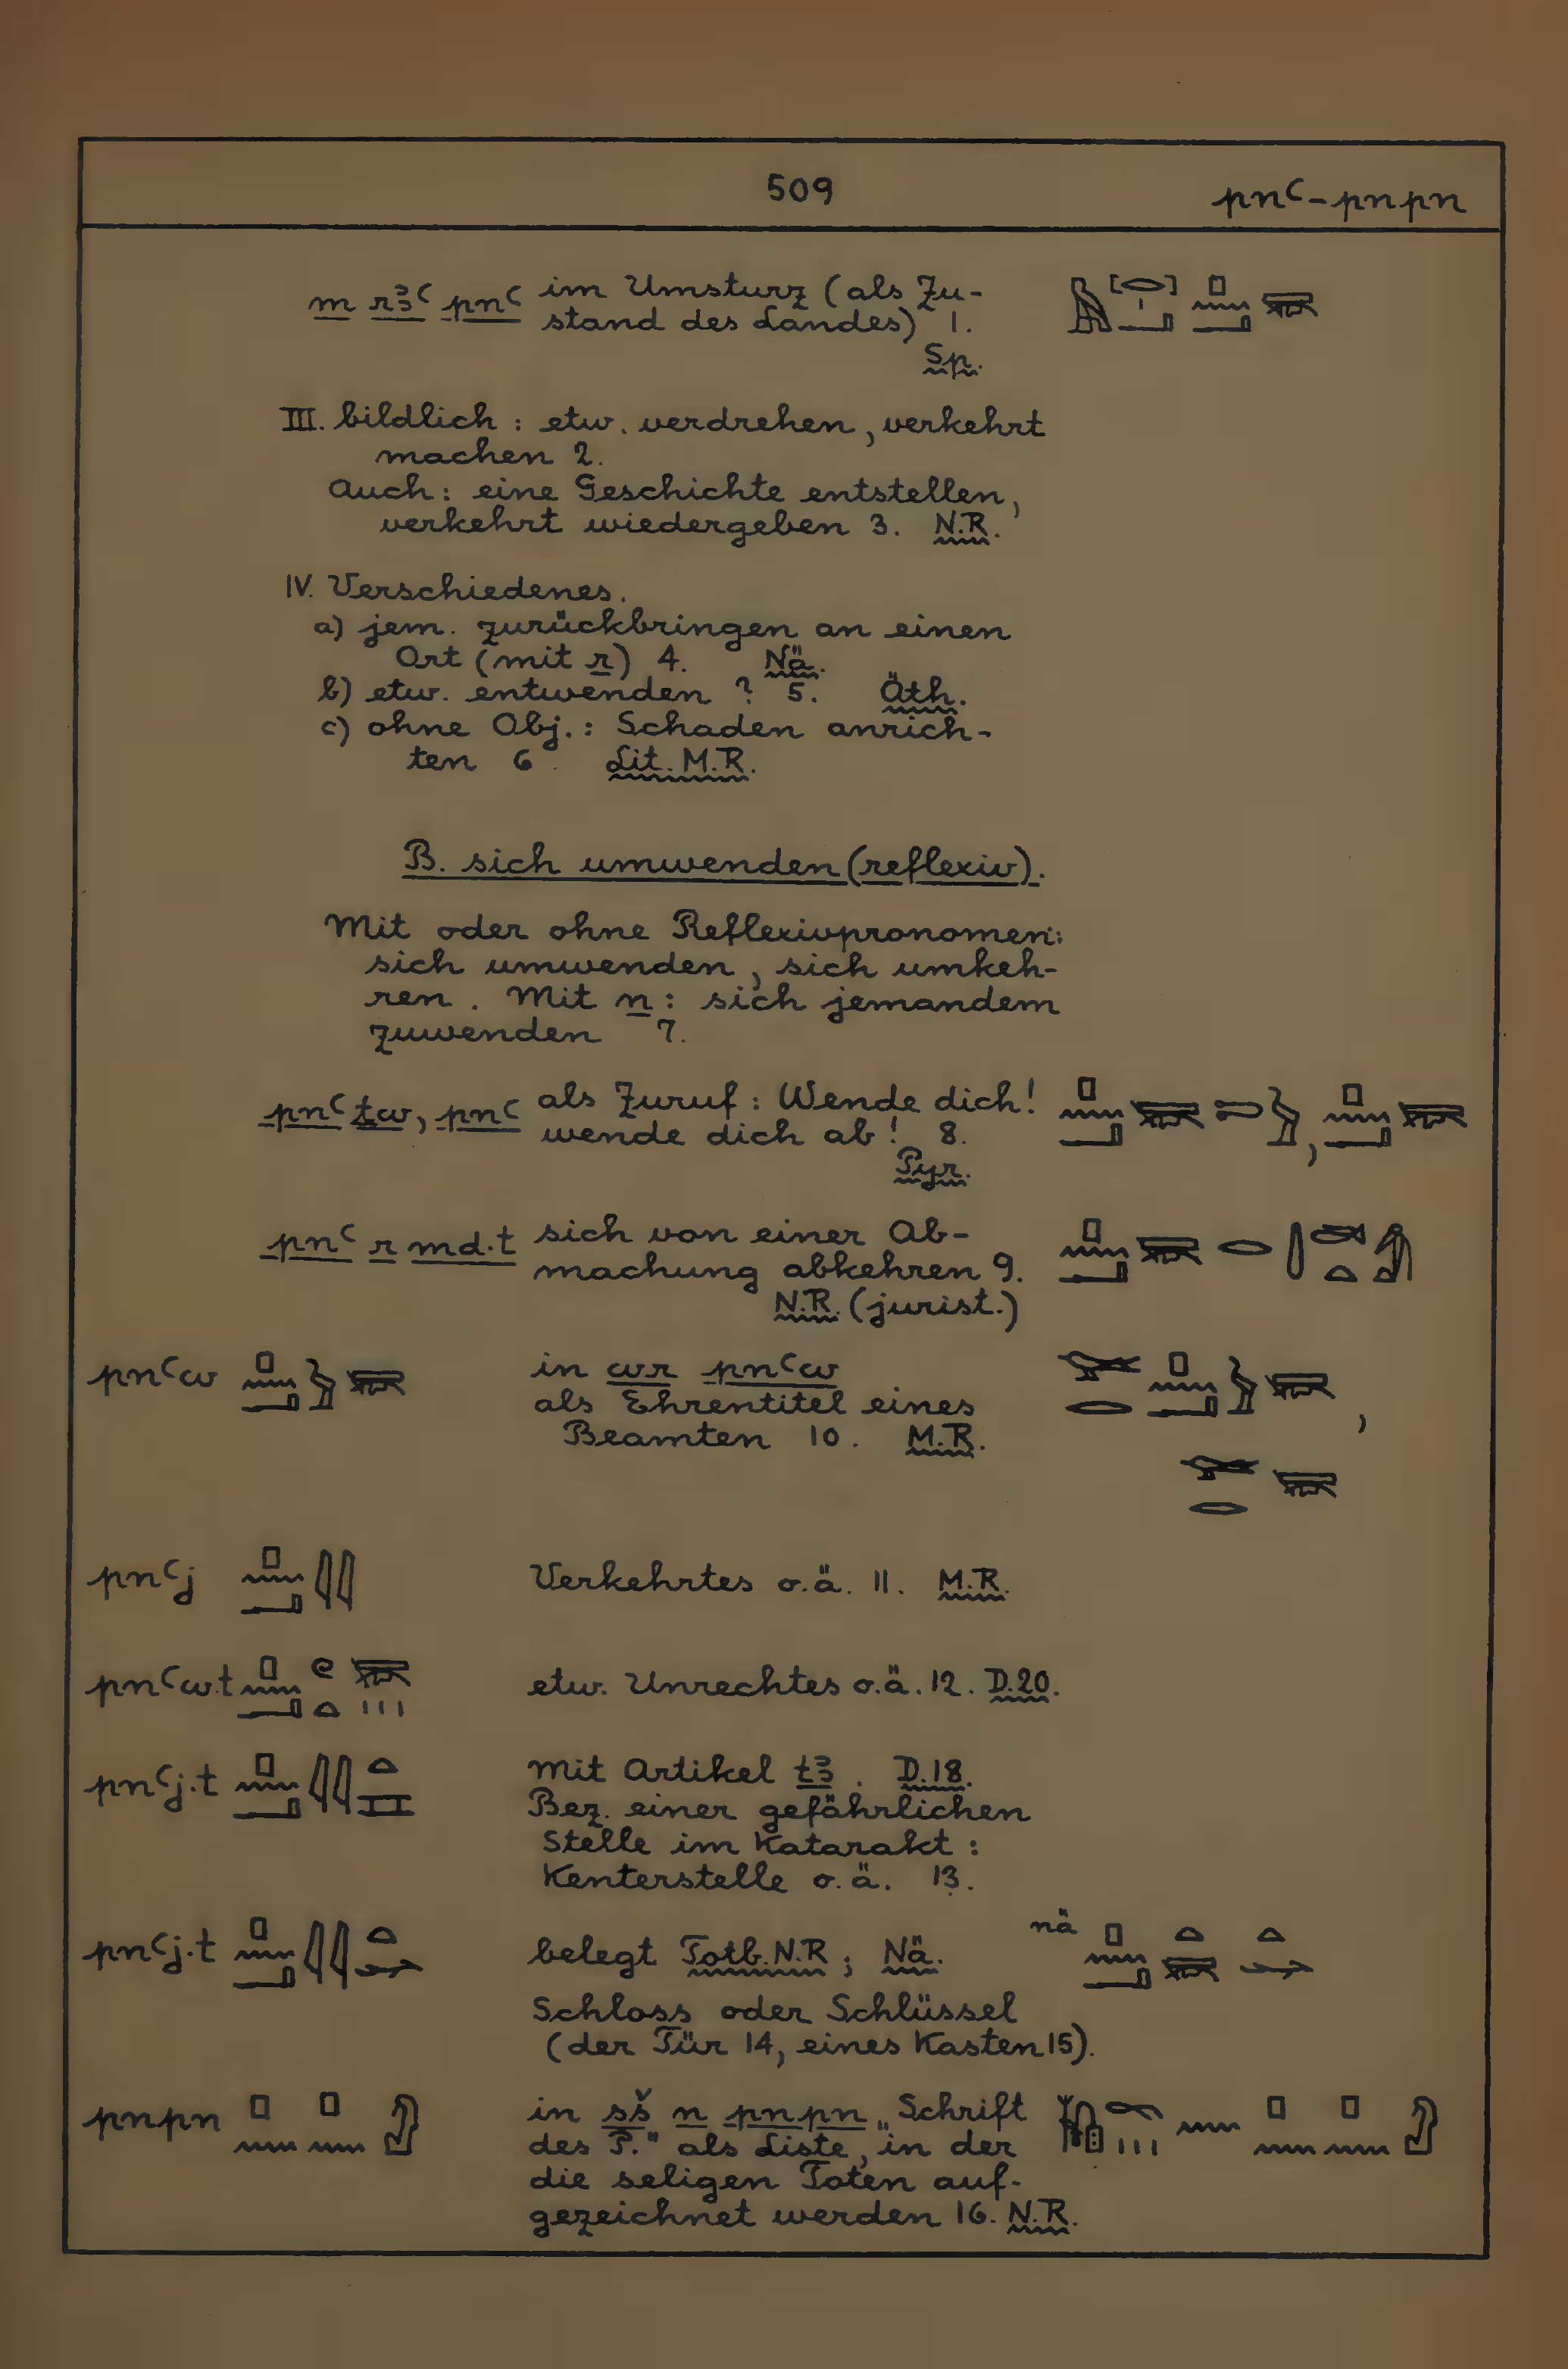 509
pnꜥ - pnpn
m rꜣꜥ pnꜥ im Umsturz (als Zu-
stand des Landes) 1.
Sp.
III. bildlich : etw. verdrehen, verkehrt
machen 2.
Auch : eine Geschichte entstellen,
verkehrt wiedergeben 3. N.R.
IV. Verschiedenes.
a) jem. zurückbringen an einen
Ort (mit r) 4. Nä.
b) etw. entwenden ? 5. Äth.
c) ohne Obj. : Schaden anrich-
ten 6. Lit. M.R.
B. sich umwenden (reflexiv).
Mit oder ohne Reflexivpronomen:
sich umwenden, sich umkeh-
ren. Mit n : sich jemandem
zuwenden 7.
pnꜥ ṯw, pnꜥ als Zuruf : Wende dich!
wende dich ab! 8.
Pyr.
pnꜥ r md.t sich von einer Ab-
machung abkehren 9.
N.R. (jurist.)
pnꜥw in wr pnꜥw
als Ehrentitel eines
Beamten 10. M.R.
pnꜥj Verkehrtes o.ä. 11. M.R.
pnꜥw.t etw. Unrechtes o.ä. 12. D.20.
pnꜥj.t Mit Artikel tꜣ. D.18.
Bez. einer gefährlichen
Stelle im Katarakt :
Kenterstelle o.ä. 13.
pnꜥj.t belegt Totb. N.R ; Nä. nä
Schloss oder Schlüssel
(der Tür 14, eines Kasten 15).
pnpn in sš n pnpn „Schrift
des P." als Liste, in der
die seligen Toten auf-
gezeichnet werden 16. N.R.